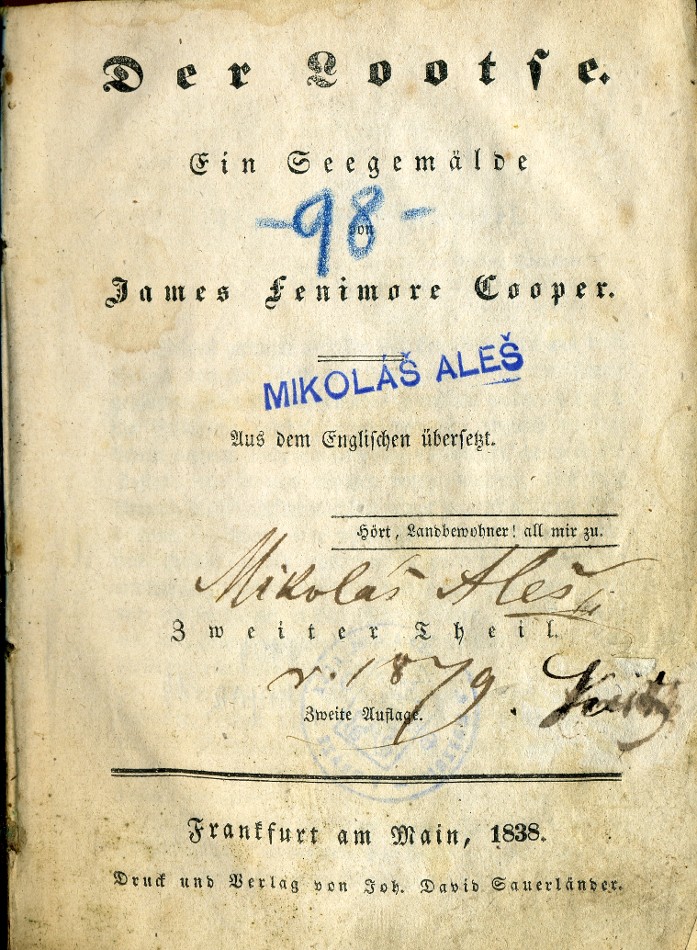 Der Lootse.
Ein Seegemälde
-98-
von
James Fenimore Cooper.
MIKOLÁŠ ALEŠ
Aus dem Englischen übersetzt.
Hört, Landbewohner! all mir zu.
Mikoláš Aleš
Zweiter Theil.
r. 1879.
Zweite Auflage.
Frankfurt am Main, 1838.
Druck und Verlag von Joh. David Sauerländer.